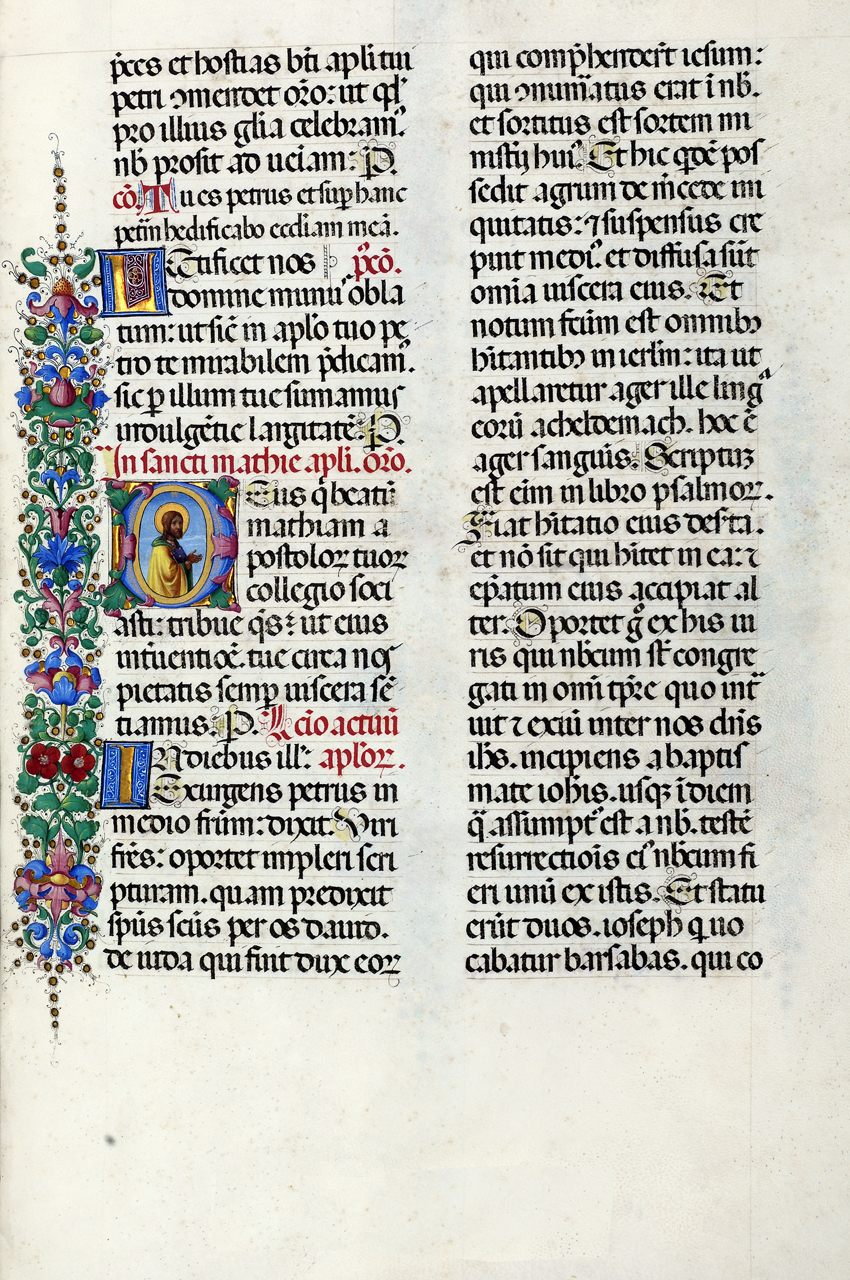 p̄ces et hostias bt̄i apl̄i tui
petri ꝯmendet or̄o: ut qd̓
pro illius gl̄ia celebram᷒.
nb̄ prosit ad ueīam: P.
cō. Tu es petrus et suꝑ hanc
petrā hedificabo eccl̄iam meā.
LEtificet nos p̄cō.
domine munu᷒ obla
tum: ut sic̄ in apl̄o tuo pe
tro te mirabilem p̄dicam᷒.
sic ꝑ illum tue sumamus
indulgētie largitatē. P.
In sancti mathie apl̄i. or̄o.
DEus q̄ beatū
mathiam a
postoloꝝ tuoꝝ
collegio soci
asti: tribue qs̄: ut eius
int̄uentiōe. tue circa nos
pietatis semꝑ uiscera sē
tiamus. P. Lc̄io actuū
IN diebus ill̄: apl̄oꝝ.
Exurgens petrus in
medio frm̄: dixit. Viri
fr̄es: oportet impleri scri
pturam. quam predixit
sp̄us sc̄us per os dauid.
de iuda qui fuit dux eoꝝ
qui comp̄henderūt iesum:
qui ꝯnumeratus erat ī nb̄.
et sortitus est sortem mi
nisterij hui᷒. Et hic qdē pos
sedit agrum de m̄cede ini
quitatis: ⁊ suspensus cre
puit medi᷒. et diffusa sūt
omīa uiscera eius. Et
notum fc̄um est omnibꝰ
hītantibꝰ in ierl̄m: ita ut
apellaretur ager ille ling̊ᵃ
eorū acheldemach. hoc ē
ager sanguīs. Scriptuꝫ
est eīm in libro psalmoꝝ.
Fiat hītatio eius desr̄ta.
et nō sit qui hītet in ea: ⁊
ep̄atum eius accipiat al
ter. Oportet g̊ ex his ui
ris qui nb̄cum st̄ congre
gati in omī tp̄re quo int̄
uit ⁊ exiuī inter nos dn̄s
ih̄s. incipiens a baptis
mate ioh̄is. usqꝫ ī diem
q̄ assumpt᷒ est a nb̄. testē
resurrectiōis ei᷒ nb̄cum fi
eri unū ex istis. Et statu
erūt duos. ioseph q̇ uo
cabatur barsabas. qui co